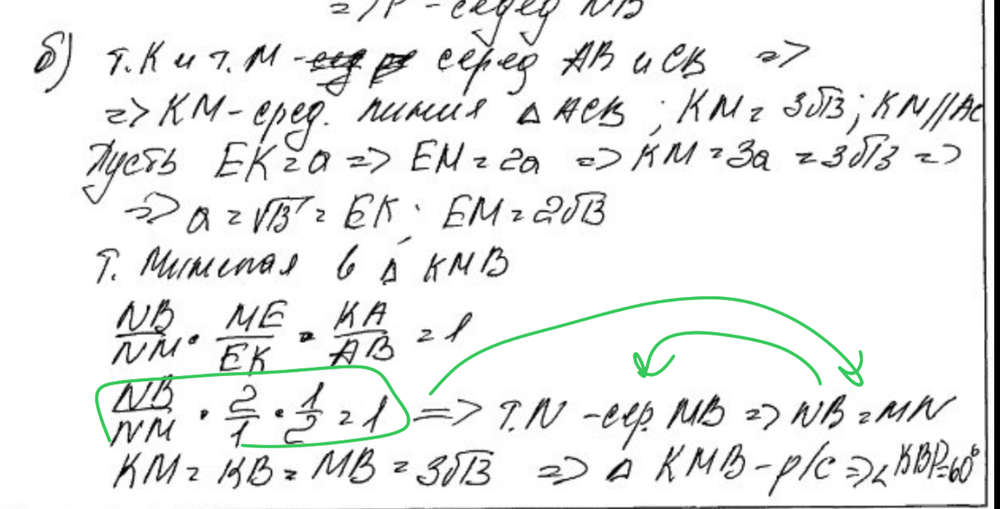 => P - серед NB
б) т. K и т. M - серед AB и CB =>
=> KM - сред. линия △ ACB ; KM = 3√13 ; KN // AC
Пусть EK = a => EM = 2a => KM = 3a = 3√13 =>
=> a = √13 = EK ; EM = 2√13
Т. Минелая в △ KMB
NB/NM · ME/EK · KA/AB = 1
NB/NM · 2/1 · 1/2 = 1 => т. N - сер. MB => NB = MN
KM = KB = MB = 3√13 => △ KMB - р/с => ∠KBP = 60°